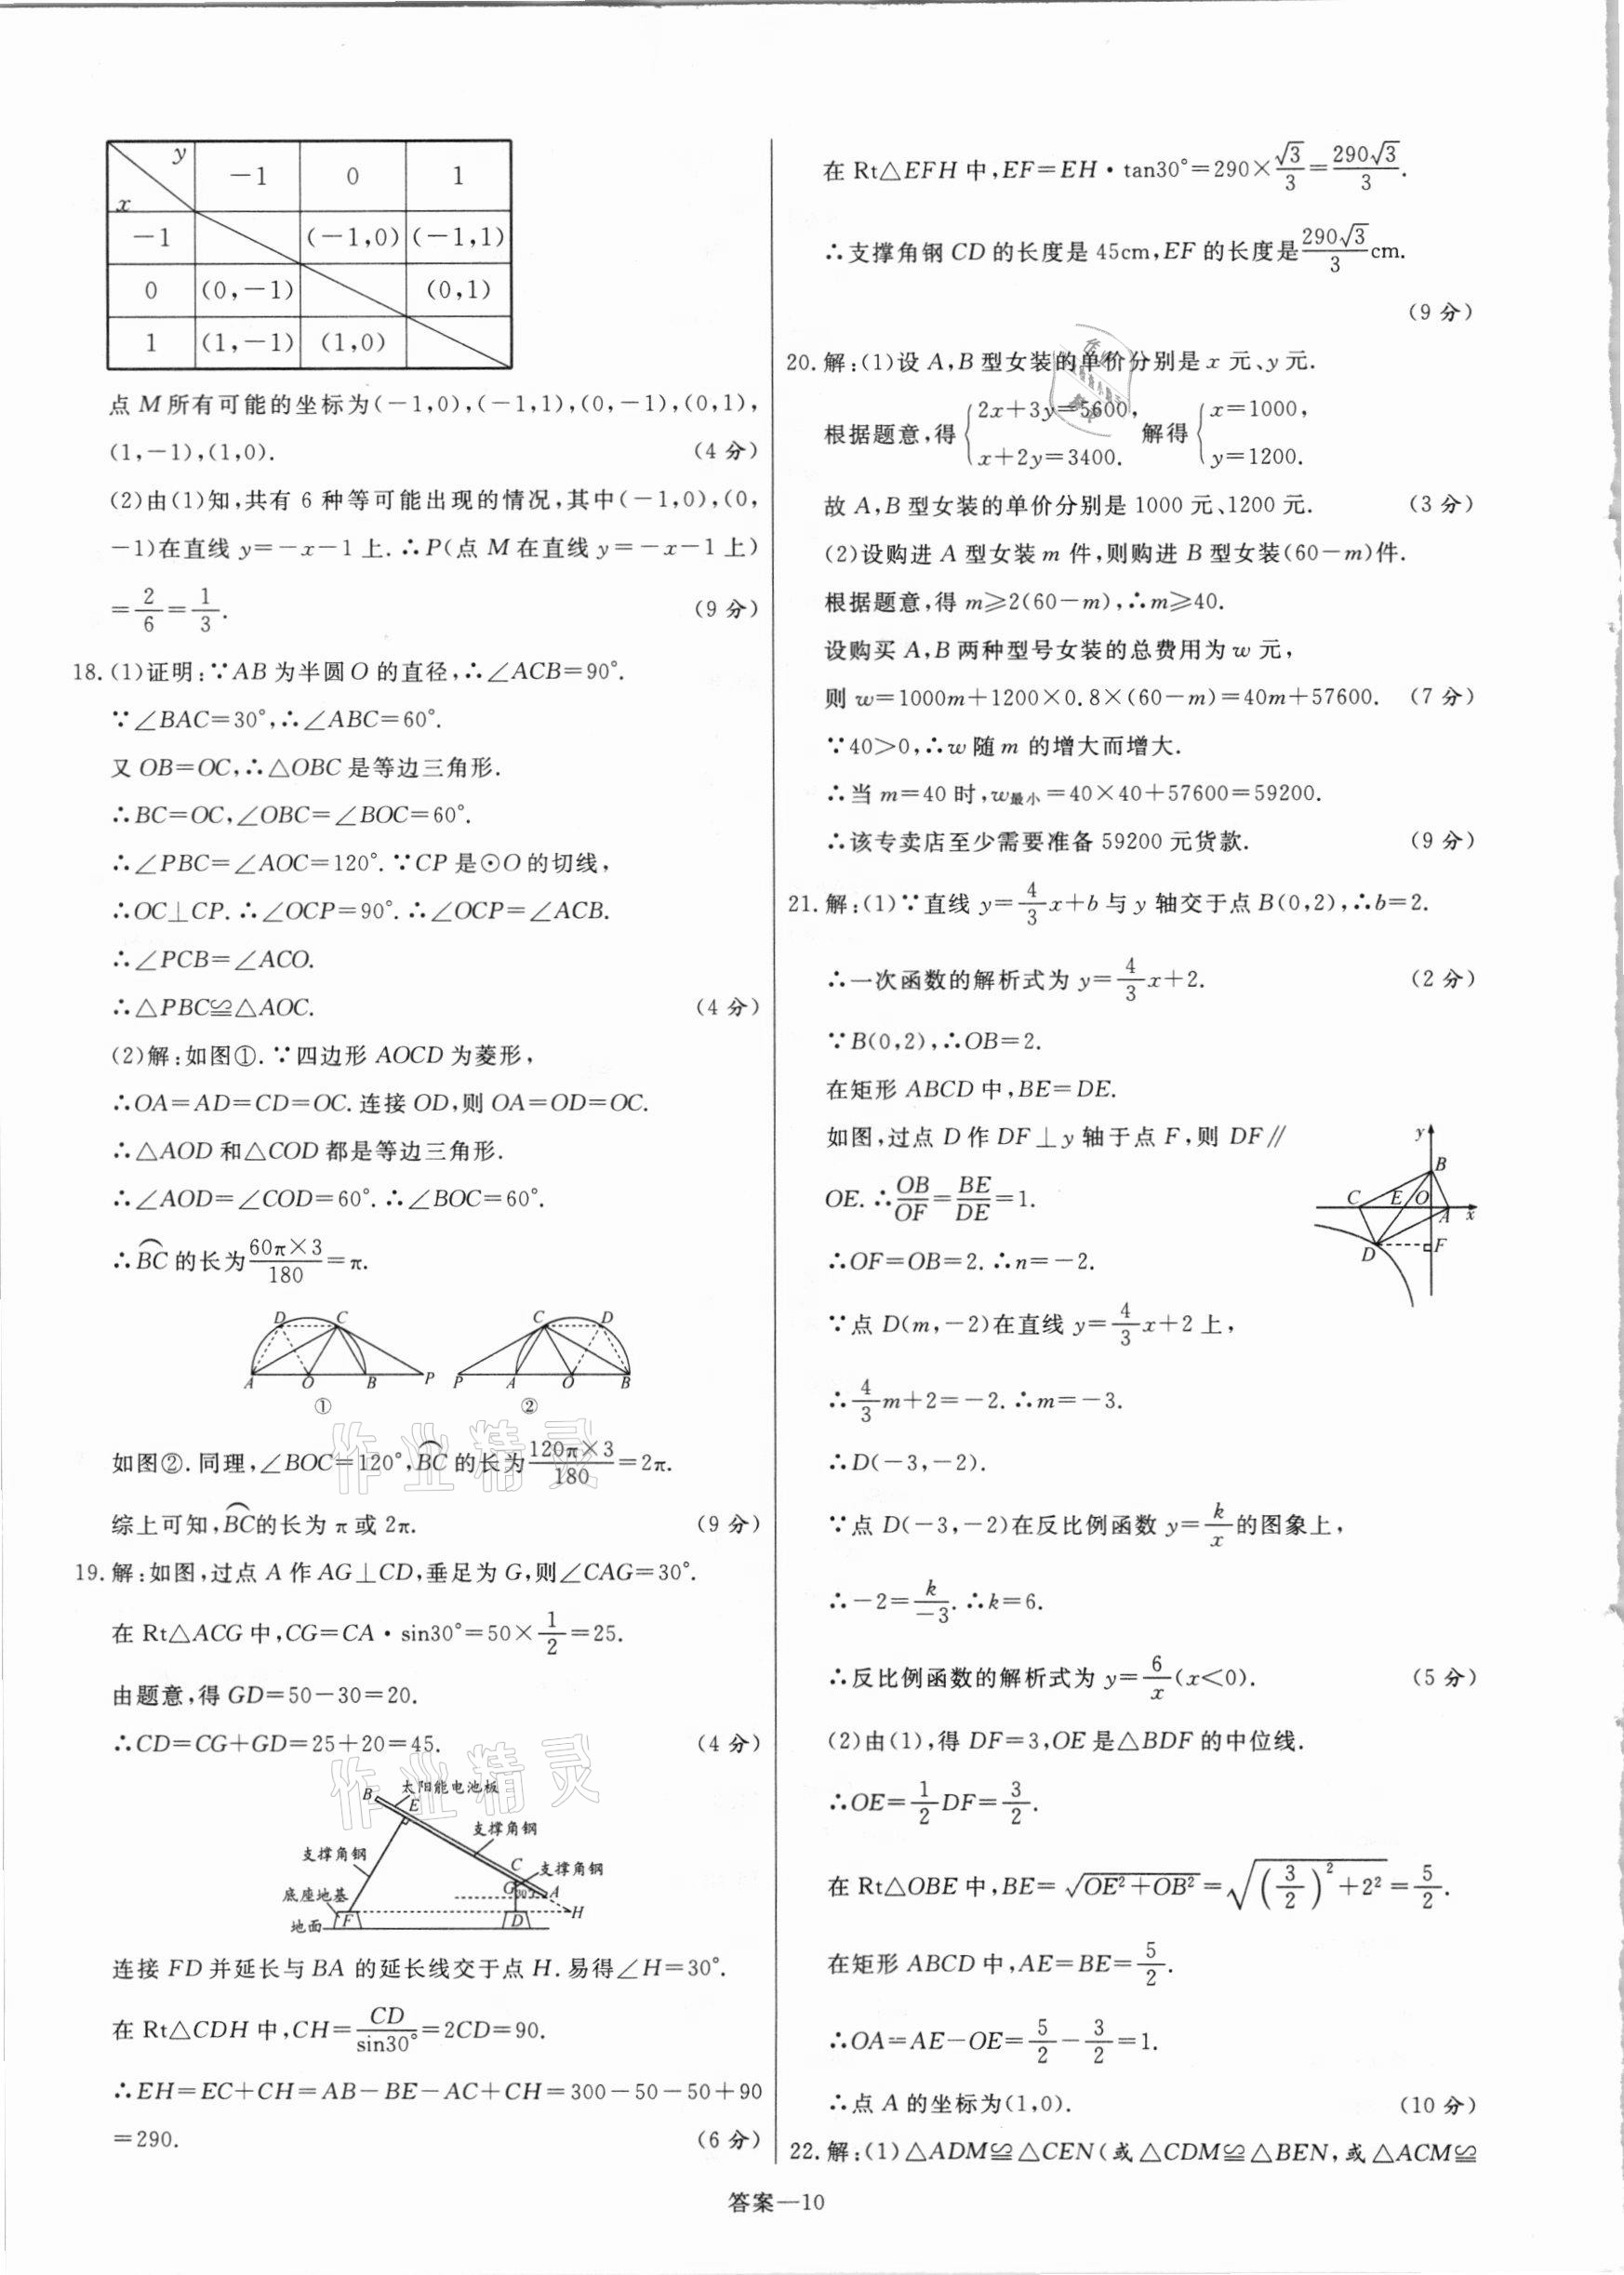 y
x
-1 0 1
-1 (-1,0) (-1,1)
0 (0,-1) (0,1)
1 (1,-1) (1,0)
点 M 所有可能的坐标为(-1,0),(-1,1),(0,-1),(0,1),
(1,-1),(1,0). (4 分)
(2)由(1)知,共有 6 种等可能出现的情况,其中(-1,0),(0,
-1)在直线 y=-x-1 上.∴P(点 M 在直线 y=-x-1 上)
=2/6=1/3. (9 分)
18.(1)证明:∵AB 为半圆 O 的直径,∴∠ACB=90°.
∵∠BAC=30°,∴∠ABC=60°.
又 OB=OC,∴△OBC 是等边三角形.
∴BC=OC,∠OBC=∠BOC=60°.
∴∠PBC=∠AOC=120°.∵CP 是⊙O 的切线,
∴OC⊥CP.∴∠OCP=90°.∴∠OCP=∠ACB.
∴∠PCB=∠ACO.
∴△PBC≌△AOC. (4 分)
(2)解:如图①.∵四边形 AOCD 为菱形,
∴OA=AD=CD=OC.连接 OD,则 OA=OD=OC.
∴△AOD 和△COD 都是等边三角形.
∴∠AOD=∠COD=60°.∴∠BOC=60°.
∴⌒BC 的长为 60π×3/180=π.
D C C D
A O B P P A O B
① ②
如图②.同理,∠BOC=120°,⌒BC 的长为 120π×3/180=2π.
综上可知,⌒BC的长为 π 或 2π. (9 分)
19.解:如图,过点 A 作 AG⊥CD,垂足为 G,则∠CAG=30°.
在 Rt△ACG 中,CG=CA·sin30°=50×1/2=25.
由题意,得 GD=50-30=20.
∴CD=CG+GD=25+20=45. (4 分)
B 太阳能电池板
E
支撑角钢
支撑角钢 C 支撑角钢
底座地基 G 30° A
地面 F D H
连接 FD 并延长与 BA 的延长线交于点 H.易得∠H=30°.
在 Rt△CDH 中,CH=CD/sin30°=2CD=90.
∴EH=EC+CH=AB-BE-AC+CH=300-50-50+90
=290. (6 分)
在 Rt△EFH 中,EF=EH·tan30°=290×√3/3=290√3/3.
∴支撑角钢 CD 的长度是 45cm,EF 的长度是290√3/3cm.
(9 分)
20.解:(1)设 A,B 型女装的单价分别是 x 元、y 元.
根据题意,得{2x+3y=5600, x+2y=3400. 解得{x=1000, y=1200.
故 A,B 型女装的单价分别是 1000 元、1200 元. (3 分)
(2)设购进 A 型女装 m 件,则购进 B 型女装(60-m)件.
根据题意,得 m≥2(60-m),∴m≥40.
设购买 A,B 两种型号女装的总费用为 w 元,
则 w=1000m+1200×0.8×(60-m)=40m+57600. (7 分)
∵40>0,∴w 随 m 的增大而增大.
∴当 m=40 时,w最小=40×40+57600=59200.
∴该专卖店至少需要准备 59200 元货款. (9 分)
21.解:(1)∵直线 y=4/3x+b 与 y 轴交于点 B(0,2),∴b=2.
∴一次函数的解析式为 y=4/3x+2. (2 分)
∵B(0,2),∴OB=2.
在矩形 ABCD 中,BE=DE.
如图,过点 D 作 DF⊥y 轴于点 F,则 DF∥
OE.∴OB/OF=BE/DE=1.
∴OF=OB=2.∴n=-2.
y
B
C E O
A x
D F
∵点 D(m,-2)在直线 y=4/3x+2 上,
∴4/3m+2=-2.∴m=-3.
∴D(-3,-2).
∵点 D(-3,-2)在反比例函数 y=k/x的图象上,
∴-2=k/-3.∴k=6.
∴反比例函数的解析式为 y=6/x(x<0). (5 分)
(2)由(1),得 DF=3,OE 是△BDF 的中位线.
∴OE=1/2DF=3/2.
在 Rt△OBE 中,BE=√(OE²+OB²)=√((3/2)²+2²)=5/2.
在矩形 ABCD 中,AE=BE=5/2.
∴OA=AE-OE=5/2-3/2=1.
∴点 A 的坐标为(1,0). (10 分)
22.解:(1)△ADM≌△CEN(或△CDM≌△BEN,或△ACM≌
答案—10
作业精灵
作业精灵